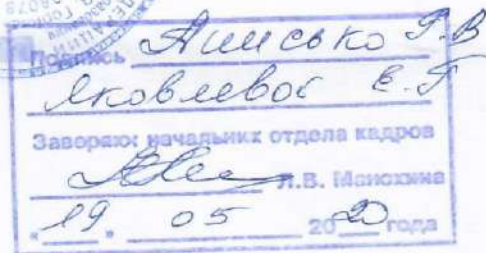 Подпись Анисько Г.В
Яковлевой Е.Г
Заверяю: начальник отдела кадров
Л.В. Манохина
"19" 05 2020 года